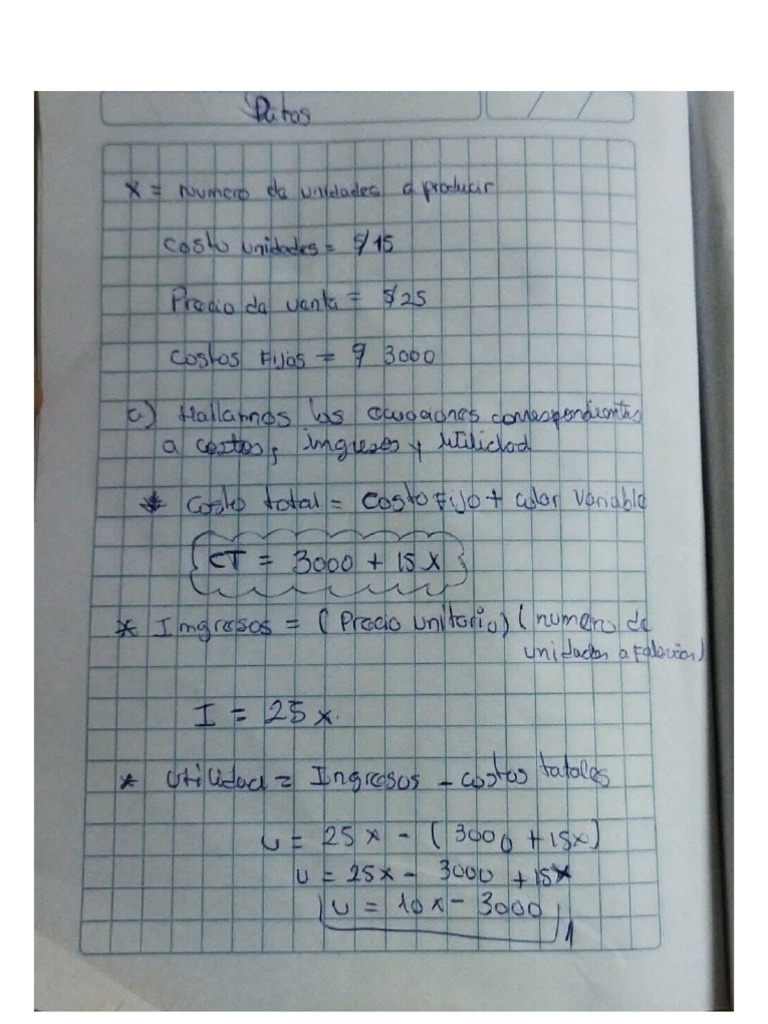 Datos
x = numero de unidades a producir
costo unidades = $/15
Precio de venta = $25
costos Fijos = $ 3000
a) Hallamos las ecuaciones correspondientes
a costos, ingresos y utilidad
* Costo total = costo Fijo + valor variable
CT = 3000 + 15 x
* Ingresos = (Precio unitario) (numero de
unidades a
I = 25 x.
* Utilidad = Ingresos - costos totales
U = 25 x - (3000 + 15x)
U = 25x - 3000 + 15x
U = 10 x - 3000